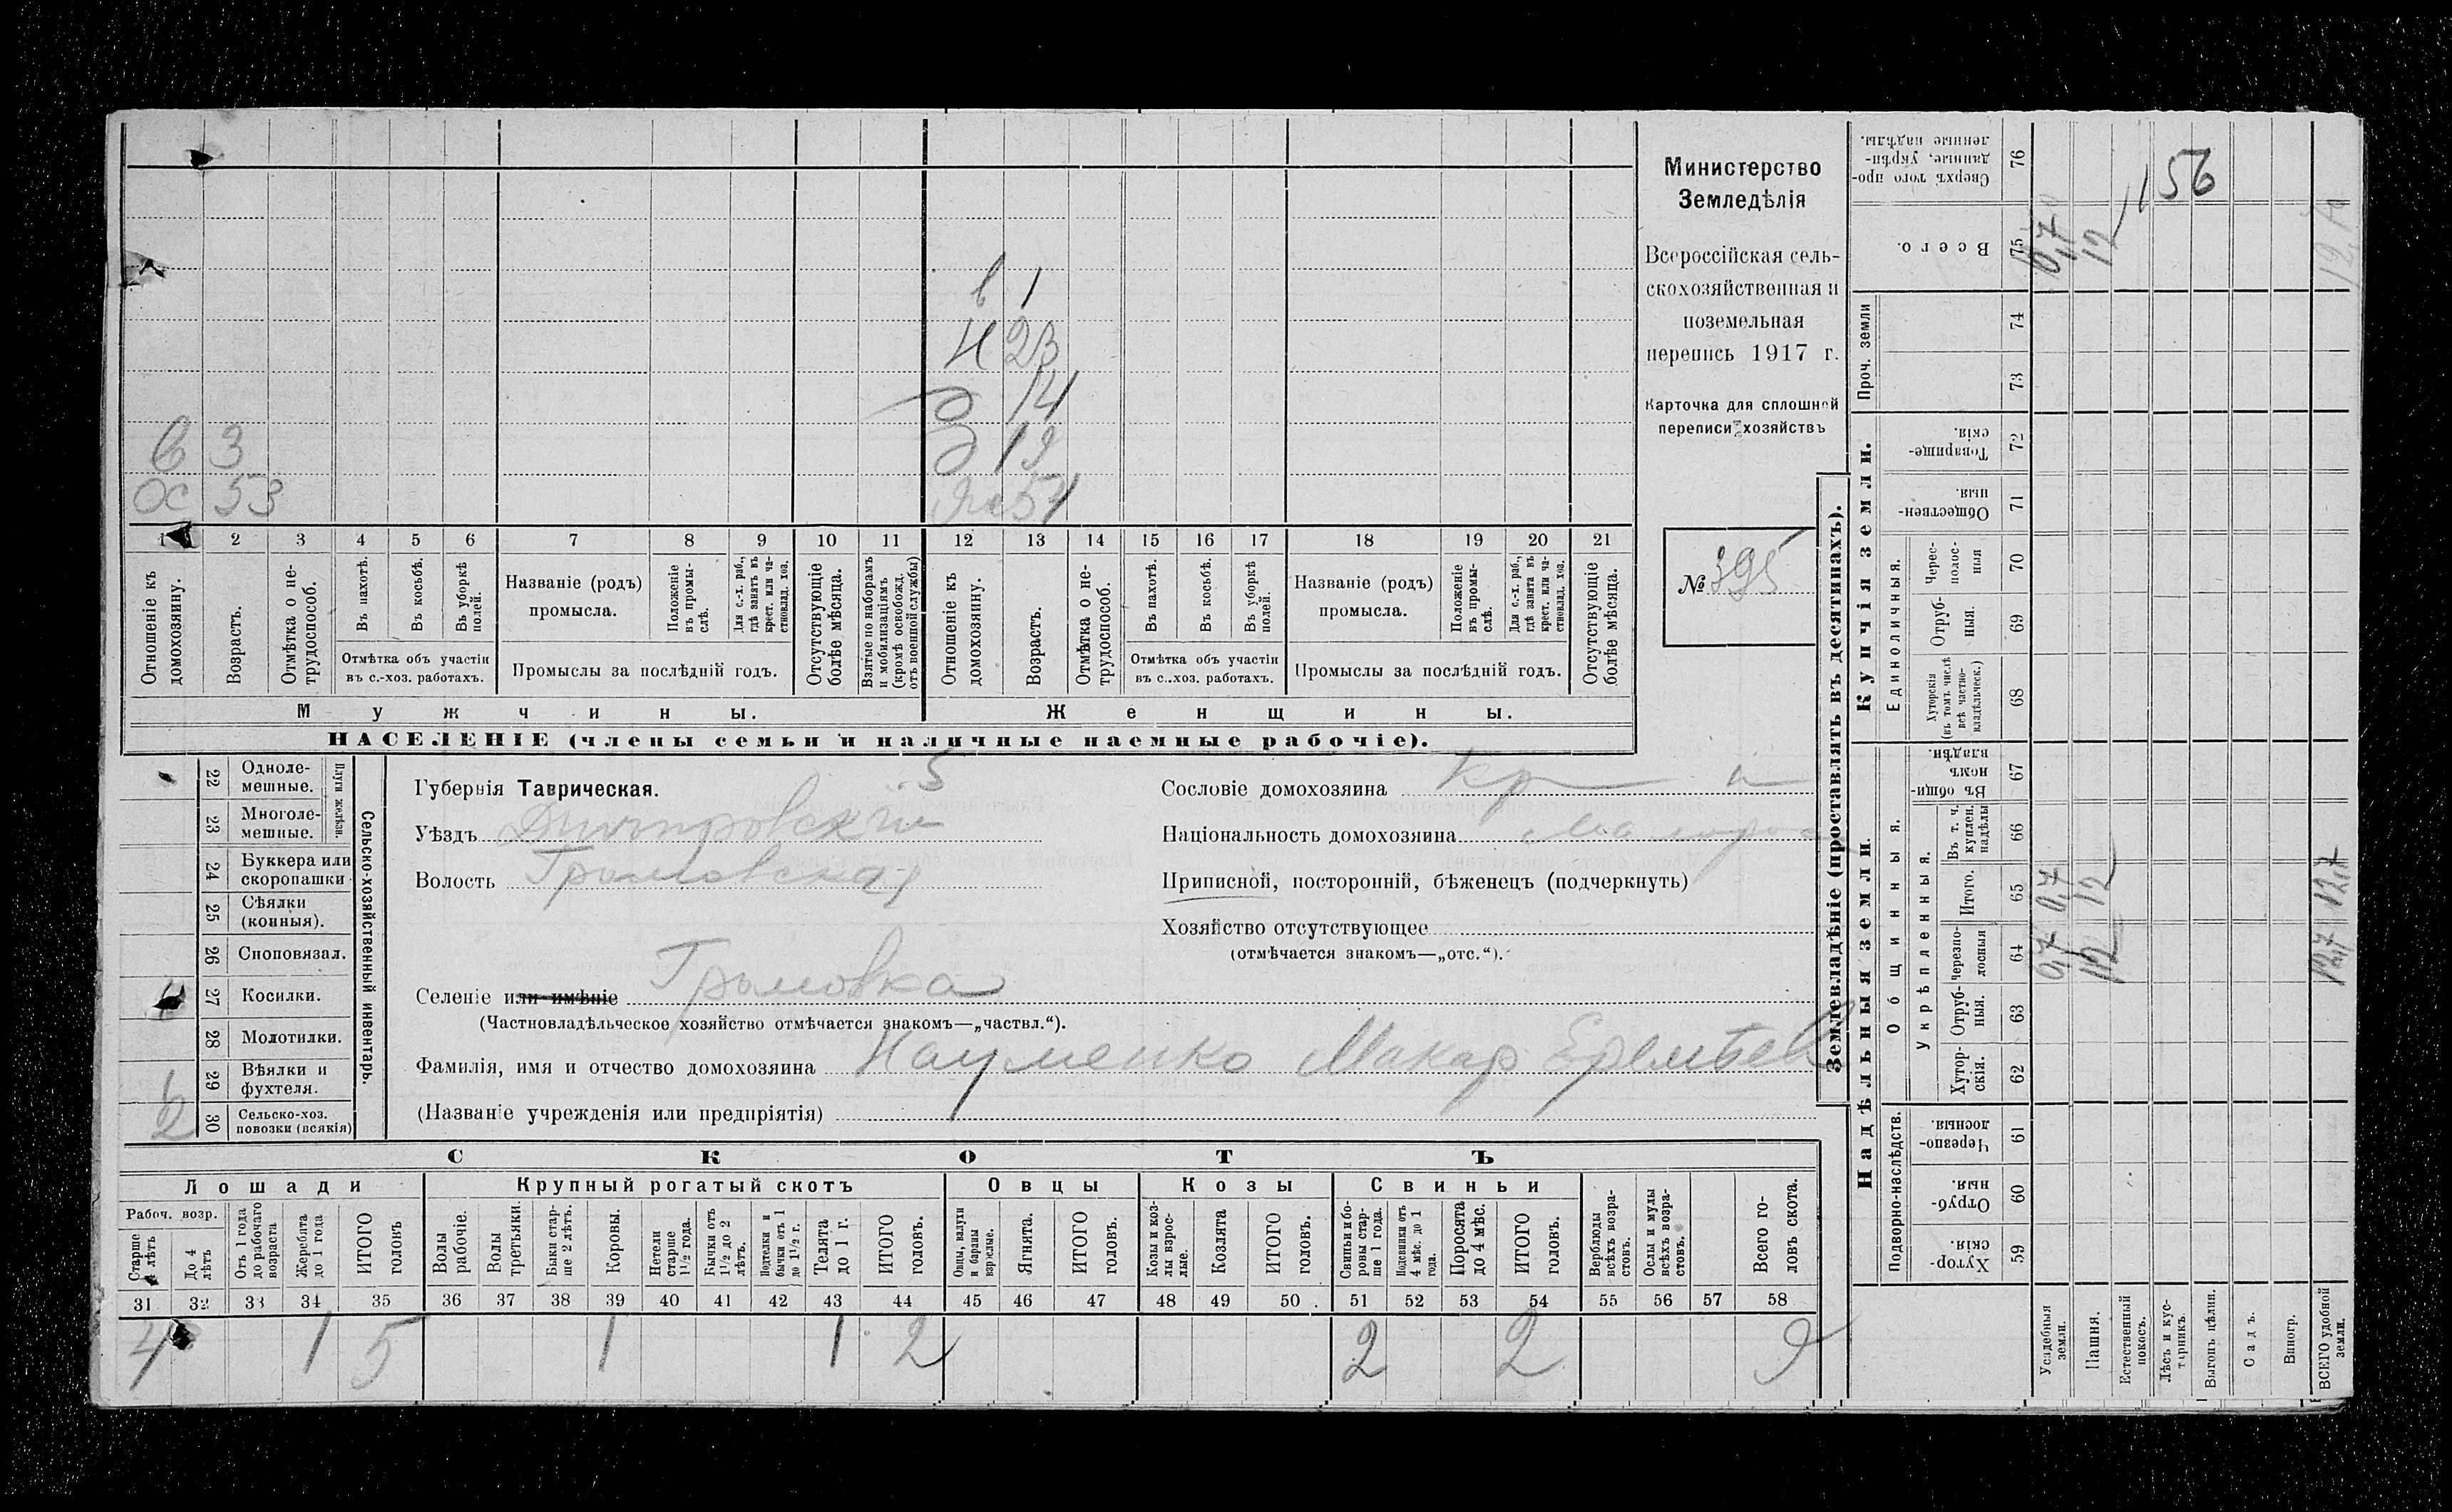 в 1
н 23
д 14
в 3 д 19
ос 53 54
1 2 3 4 5 6 7 8 9 10 11 12 13 14 15 16 17 18 19 20 21
Отношеніе къ домохозяину.
Возрастъ.
Отмѣтка о не-
трудоспособ.
Въ пахотѣ.
Въ косьбѣ.
Въ уборкѣ
полей.
Отмѣтка объ участіи
въ с.-хоз. работахъ.
Названіе (родъ)
промысла.
Положеніе
въ промы-
слѣ.
Для с.-х. раб.,
гдѣ занятъ въ
крест. или ча-
стновлад. хоз.
Промыслы за послѣдній годъ.
Отсутствующіе
болѣе мѣсяца.
Взятые по наборамъ
и мобилизаціямъ
(кромѣ освобожд.
отъ военной службы)
Отношеніе къ
домохозяину.
Возрастъ.
Отмѣтка о не-
трудоспособ.
Въ пахотѣ.
Въ косьбѣ.
Въ уборкѣ
полей.
Отмѣтка объ участіи
въ с..хоз. работахъ.
Названіе (родъ)
промысла.
Положеніе
въ промы-
слѣ.
Для с.-х. раб.,
гдѣ занята въ
крест. или ча-
стновлад. хоз.
Промыслы за послѣдній годъ.
Отсутствующіе
болѣе мѣсяца.
Мужчины. Женщины.
НАСЕЛЕНІЕ (члены семьи и наличные наемные рабочіе).
Министерство
Земледѣлія
Всероссійская сель-
скохозяйственная и
поземельная
перепись 1917 г.
Карточка для сплошной
переписи хозяйствъ
№ 395
22 Одноле-
мешные.
23 Многоле-
мешные.
Плуги желѣзн.
24 Буккера или
скоропашки
25 Сѣялки
(конныя).
26 Сноповязал.
27 Косилки.
28 Молотилки.
29 Вѣялки и
фухтеля.
2 30 Сельско-хоз.
повозки (всякія)
Сельско-хозяйственный инвентарь.
Губернія Таврическая. 5
Уѣздъ Днѣпровскій
Волость Громовская
Сословіе домохозяина кр
Національность домохозяина Малорос
Приписной, посторонній, бѣженецъ (подчеркнуть)
Хозяйство отсутствующее
(отмѣчается знакомъ—„отс.“).
Селеніе или имѣніе Громовка
(Частновладѣльческое хозяйство отмѣчается знакомъ—„частвл.“).
Фамилія, имя и отчество домохозяина Науменко Макар Еремѣев
(Названіе учрежденія или предпріятія)
СКОТЪ
Лошади Крупный рогатый скотъ Овцы Козы Свиньи
Рабоч. возр.
Старше
4 лѣтъ
До 4
лѣтъ
Отъ 1 года
до рабочаго
возраста
Жеребята
до 1 года
ИТОГО
головъ
Волы
рабочіе.
Волы
третьяки.
Быки стар-
ше 2 лѣтъ.
Коровы.
Нетели
старше
1½ года.
Бычки отъ
1½ до 2
лѣтъ.
Подтелки и
бычки отъ 1
до 1½ г.
Телята
до 1 г.
ИТОГО
головъ.
Овцы, валухи
и бараны
взрослые.
Ягнята.
ИТОГО
головъ.
Козы и коз-
лы взрос-
лые.
Козлята
ИТОГО
головъ.
Свиньи и бо-
ровы стар-
ше 1 года.
Подсвинки отъ
4 мѣс. до 1
года.
Поросята
до 4 мѣс.
ИТОГО
головъ.
Верблюды
всѣхъ возра-
стовъ.
Ослы и мулы
всѣхъ возра-
стовъ.
Всего го-
ловъ скота.
31 32 33 34 35 36 37 38 39 40 41 42 43 44 45 46 47 48 49 50 51 52 53 54 55 56 57 58
4 1 5 1 1 2 2 2 9
Землевладѣніе (проставлять въ десятинахъ).
Надѣльныя земли. Купчія земли.
Подворно-наслѣдств.
Общинныя.
Укрѣпленныя.
Единоличныя.
Проч. земли
Хутор-
скія. 59
Отруб-
ныя. 60
Черезпо-
лосныя. 61
Хутор-
скія. 62
Отруб-
ныя. 63
Черезпо-
лосныя 64
Итого. 65
Въ т. ч.
куплен.
надѣлы 66
Въ общин-
номъ
владѣн. 67
Хуторскія
(въ томъ числѣ
всѣ частно-
владѣльческ.) 68
Отруб-
ныя. 69
Черес-
полос-
ныя 70
Обществен-
ныя. 71
Товарище-
скія. 72
73
74
Всего. 75
Сверхъ того про-
данные, укрѣп-
ленные надѣлы. 76
Усадебныя
земли.
0,7 0,7 0,7
Пашня.
12 12 12
Естественный
покосъ.
Лѣсъ и кус-
тарникъ.
156
Выгонъ цѣлин.
Садъ.
Виногр.
ВСЕГО удобной
земли.
12,7 12,7 12,7